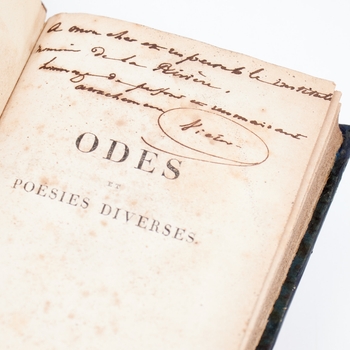 A mon cher et
de la Rivière,
hommage de et reconnaissant
attachement Victor.
ODES
ET
POÉSIES DIVERSES.